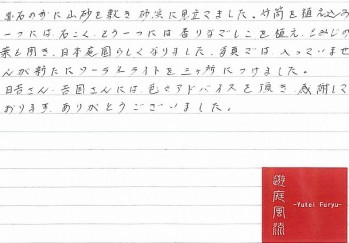 石の外に山砂を敷き砂浜に見立てました。竹筒を植え込み
一つには石こく、もう一つには香りなでしこを植え、もみじの
葉も開き、日本庭園らしくなりました。写真では、入っていませ
んが新たにソーラーライトを三ヶ所につけました。
日吉さん、吉岡さんには、色々アドバイスを頂き、感謝して
おります。ありがとうございました。
遊庭風流
-Yutei Furyu-